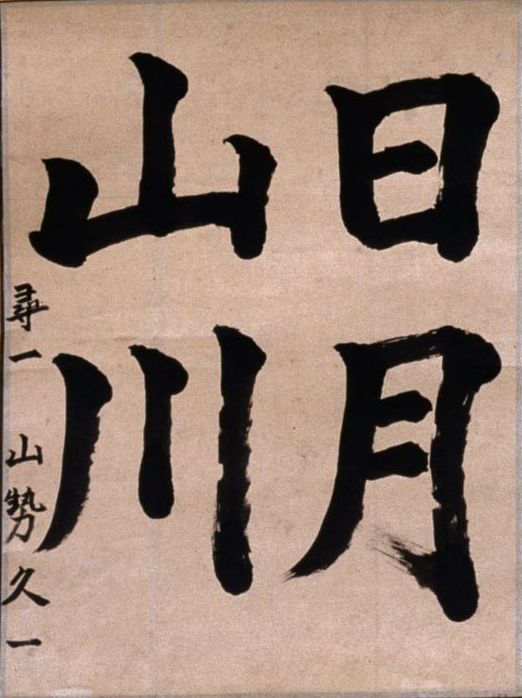 日月
山川
尋一 山勢久一